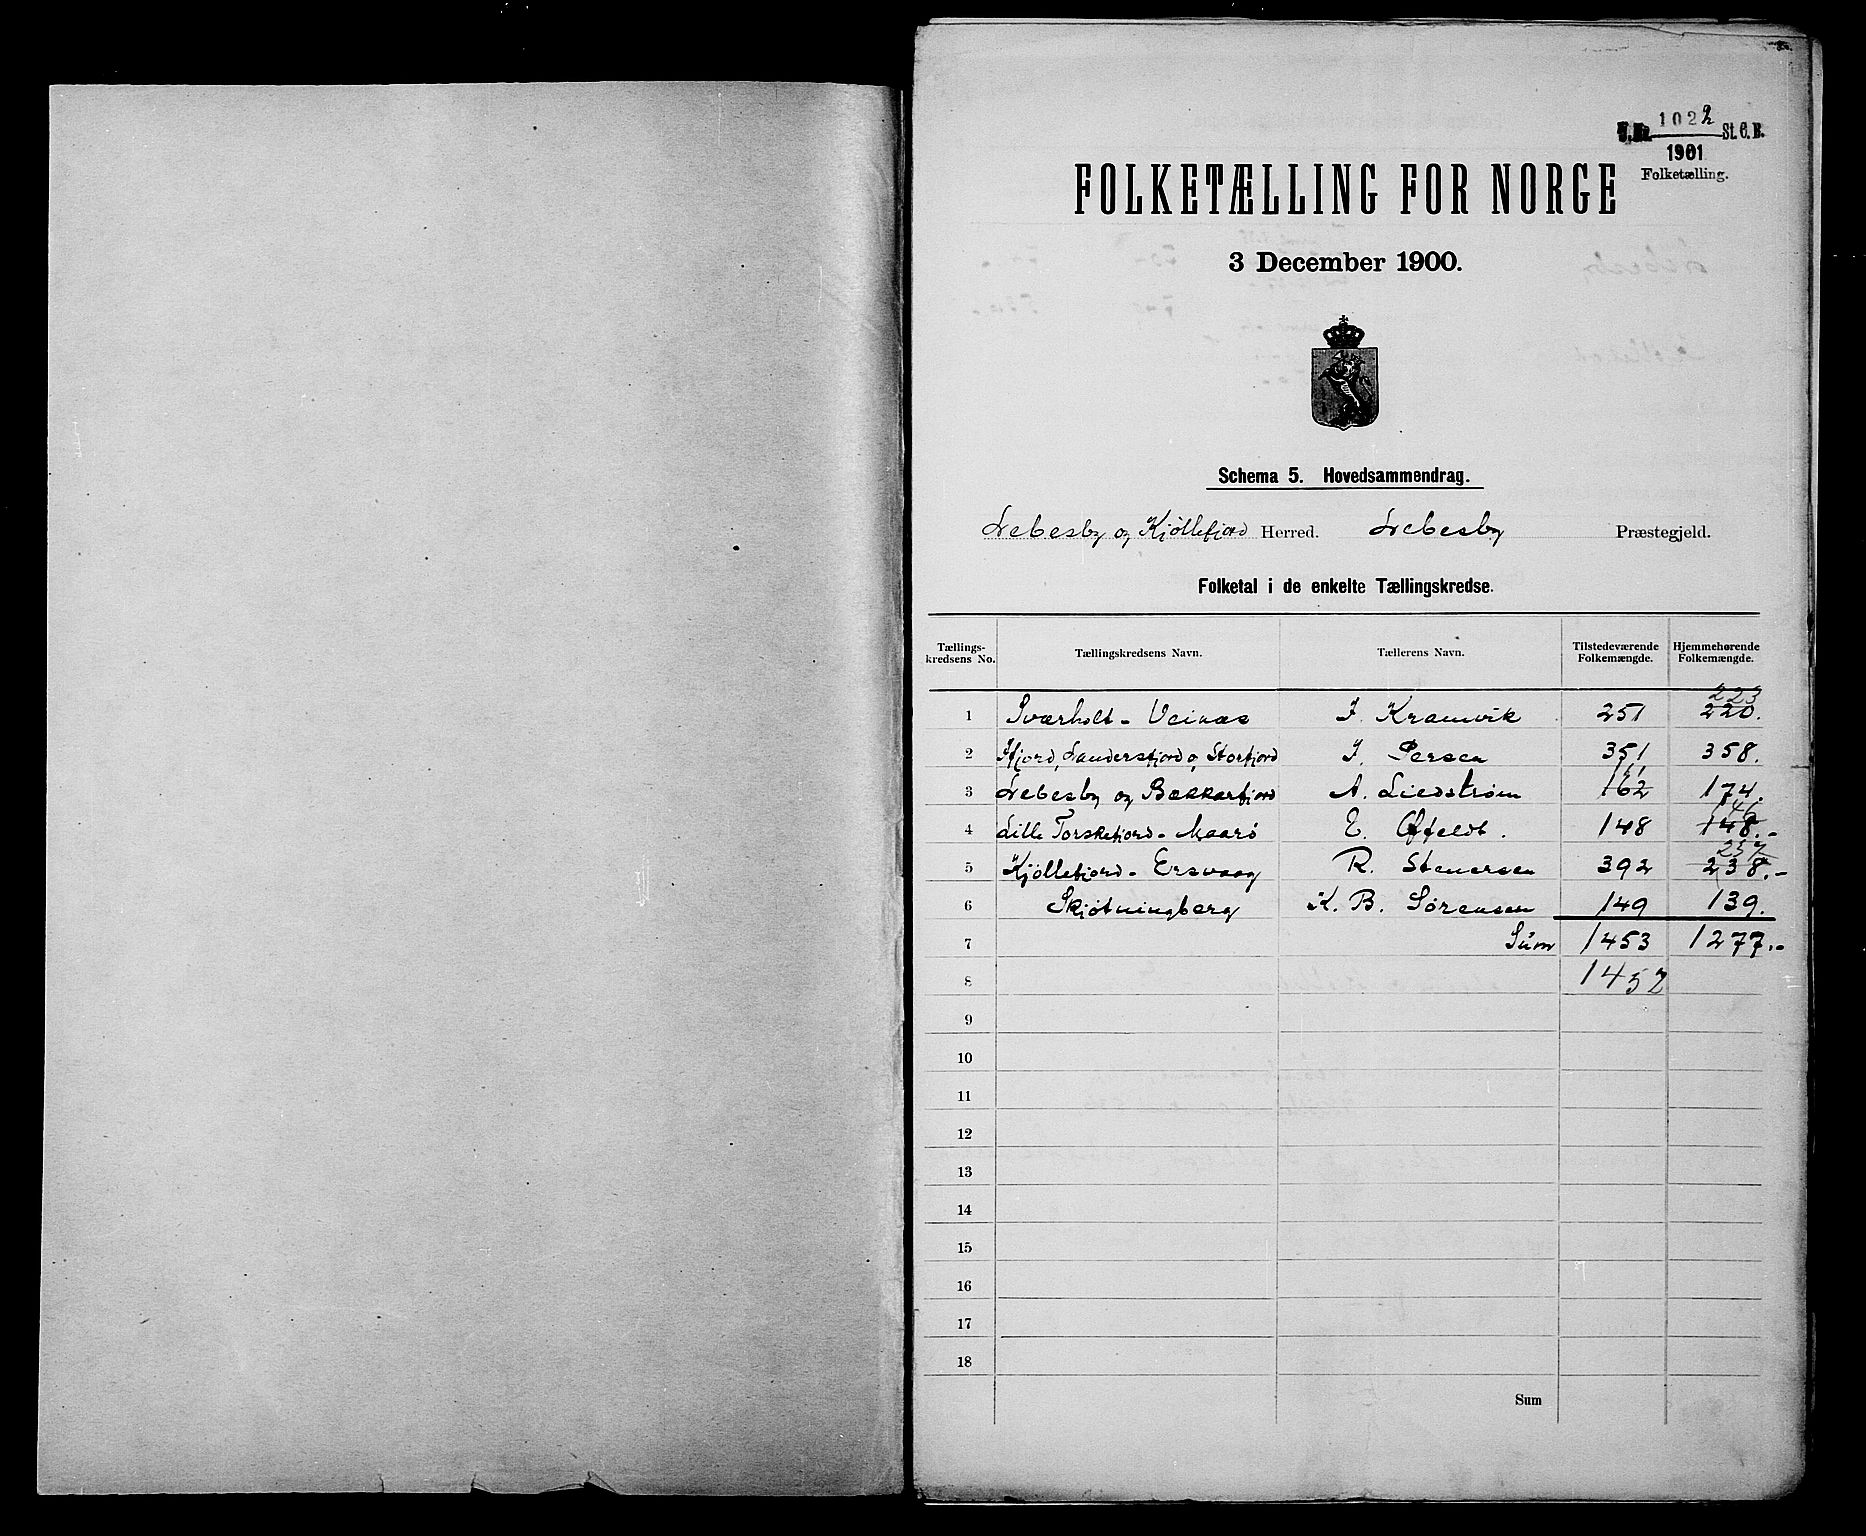 J.Nr. 1022 St. C. B.
1901
Folketælling.
FOLKETÆLLING FOR NORGE
3 December 1900.
Schema 5. Hovedsammendrag.
Lebesby og Kjøllefjord Herred. Lebesby Præstegjeld.
Folketal i de enkelte Tællingskredse.
Tællings- kredsens No. Tællingskredsens Navn. Tællerens Navn. Tilstedeværende Folkemængde. Hjemmehørende Folkemængde.
223
1 Sværholt - Veinæs J. Kramvik 251 220.
2 Ifjord, Landersfjord o, Storfjord J. Persen 351 358.
161
3 Lebesby og Bekkarfjord A. Liedstrøm 162 174.
146
4 Lille Torskefjord - Maarø E. 148 148.-
237
5 Kjøllefjord - Ersvaag R. Stenersen 392 238.-
6 Skjøtningberg K. B. Sørensen 149 139.
7 Sum 1453 1277.-
8 1452
9
10
11
12
13
14
15
16
17
18
Sum